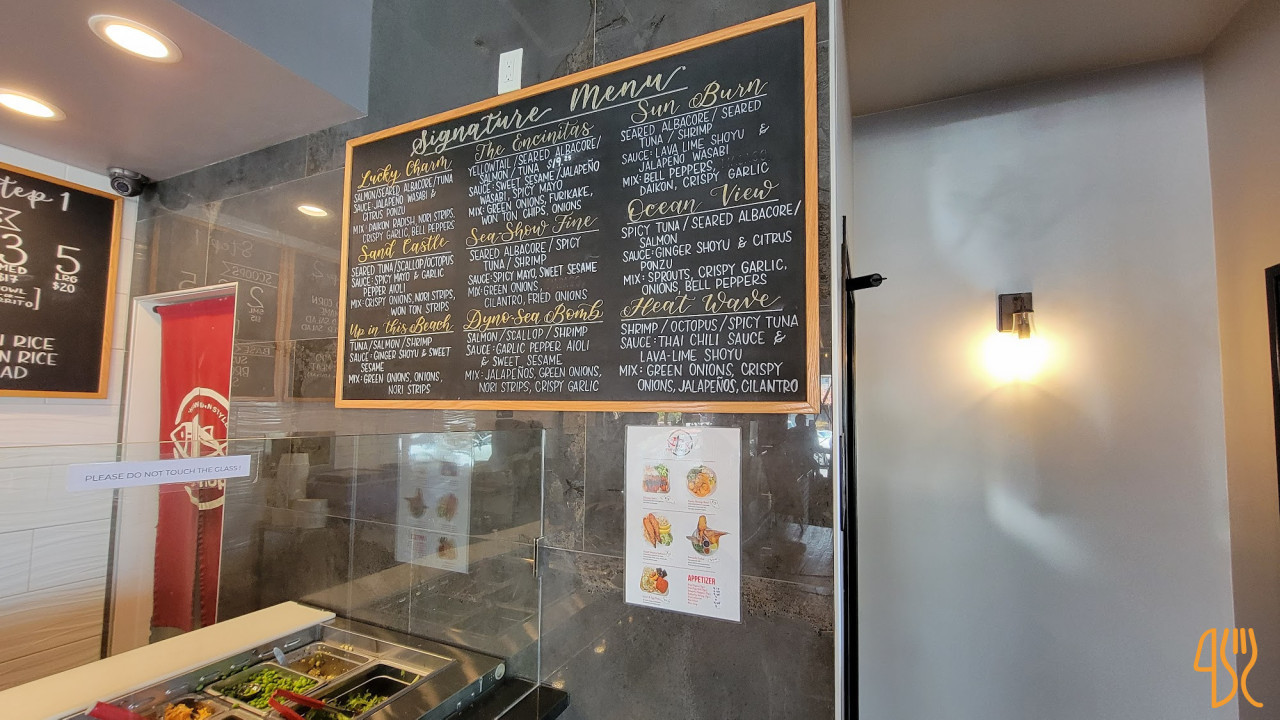 Step 1
3
5
LRG
$20
RICE
RICE
Signature Menu
Lucky Charm
SALMON/SEARED ALBACORE/TUNA
SAUCE: JALAPEÑO WASABI &
CITRUS PONZU
MIX: DAIKON RADISH, NORI STRIPS,
CRISPY GARLIC, BELL PEPPERS
Sand Castle
SEARED TUNA/SCALLOP/OCTOPUS
SAUCE: SPICY MAYO & GARLIC
PEPPER AIOLI
MIX: CRISPY ONIONS, NORI STRIPS,
WON TON STRIPS
Up in this Beach
TUNA/SALMON/SHRIMP
SAUCE: GINGER SHOYU & SWEET
SESAME
MIX: GREEN ONIONS, ONIONS,
NORI STRIPS
The Encinitas
YELLOWTAIL/SEARED ALBACORE/
SALMON/TUNA
SAUCE: SWEET SESAME/JALAPEÑO
WASABI, SPICY MAYO
MIX: GREEN ONIONS, FURIKAKE,
WON TON CHIPS, ONIONS
Sea-Show Fine
SEARED ALBACORE/SPICY
TUNA/SHRIMP
SAUCE: SPICY MAYO, SWEET SESAME
MIX: GREEN ONIONS,
CILANTRO, FRIED ONIONS
Dyno-Sea Bomb
SALMON/SCALLOP/SHRIMP
SAUCE: GARLIC PEPPER AIOLI
& SWEET SESAME
MIX: JALAPEÑOS, GREEN ONIONS,
NORI STRIPS, CRISPY GARLIC
Sun Burn
SEARED ALBACORE/SEARED
TUNA/SHRIMP
SAUCE: LAVA LIME SHOYU &
JALAPEÑO WASABI
MIX: BELL PEPPERS,
DAIKON, CRISPY GARLIC
Ocean View
SPICY TUNA/SEARED ALBACORE/
SALMON
SAUCE: GINGER SHOYU & CITRUS
PONZU
MIX: SPROUTS, CRISPY GARLIC,
ONIONS, BELL PEPPERS
Heat Wave
SHRIMP/OCTOPUS/SPICY TUNA
SAUCE: THAI CHILI SAUCE &
LAVA-LIME SHOYU
MIX: GREEN ONIONS, CRISPY
ONIONS, JALAPEÑOS, CILANTRO
PLEASE DO NOT TOUCH THE GLASS!
APPETIZER